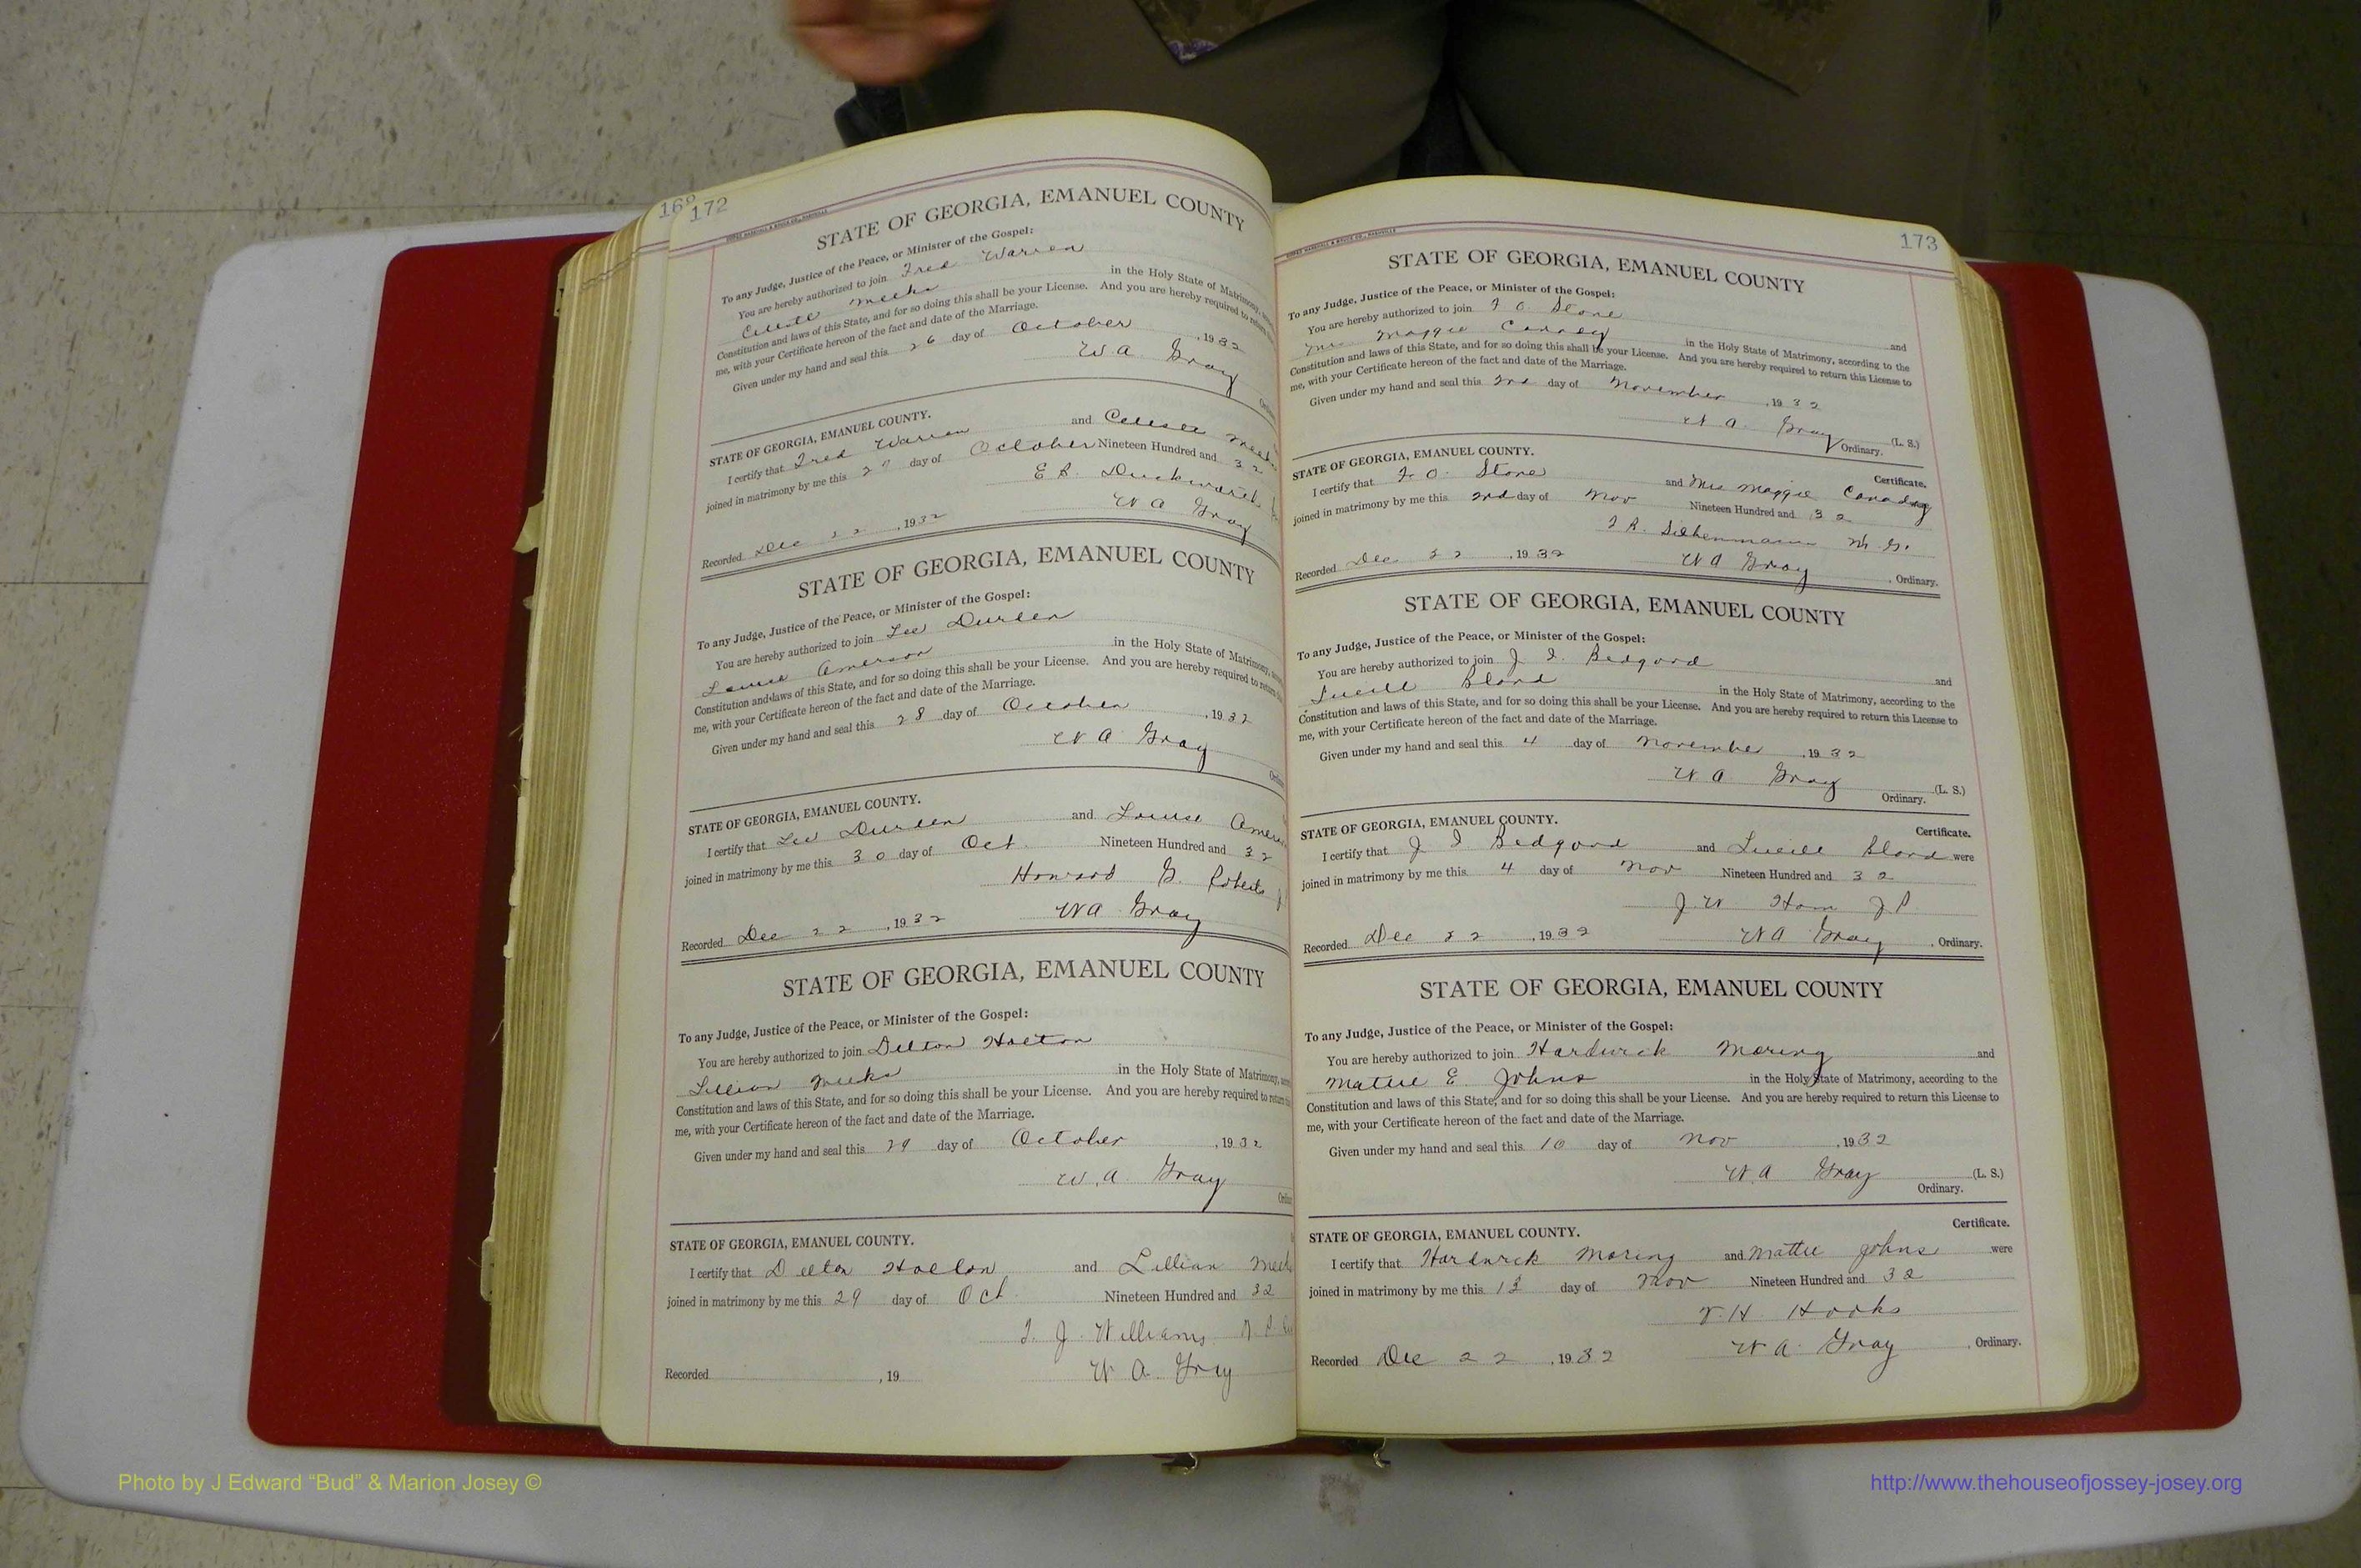 168
172
STATE OF GEORGIA, EMANUEL COUNTY
To any Judge, Justice of the Peace, or Minister of the Gospel:
You are hereby authorized to join Fred Warren
Meeks in the Holy State of Matrimony,
Constitution and laws of this State, and for so doing this shall be your License. And you are hereby required to return
me, with your Certificate hereon of the fact and date of the Marriage.
Given under my hand and seal this 26 day of October, 1932
W. A. Gray
STATE OF GEORGIA, EMANUEL COUNTY.
I certify that Fred Warren and Meeks
joined in matrimony by me this day of October Nineteen Hundred and 32
E R. Duckworth
W A Gray
Recorded Dec 22, 1932
STATE OF GEORGIA, EMANUEL COUNTY
To any Judge, Justice of the Peace, or Minister of the Gospel:
You are hereby authorized to join Lee Durden
Louise Amerson in the Holy State of Matrimony,
Constitution and laws of this State, and for so doing this shall be your License. And you are hereby required to return
me, with your Certificate hereon of the fact and date of the Marriage.
Given under my hand and seal this 28 day of October, 1932
W A Gray
STATE OF GEORGIA, EMANUEL COUNTY.
I certify that Lee Durden and Louise
joined in matrimony by me this 30 day of Oct. Nineteen Hundred and 32
Howard G. Roberts
W A Gray
Recorded Dec 22, 1932
STATE OF GEORGIA, EMANUEL COUNTY
To any Judge, Justice of the Peace, or Minister of the Gospel:
You are hereby authorized to join Delton Holton
Lillian Meeks in the Holy State of Matrimony,
Constitution and laws of this State, and for so doing this shall be your License. And you are hereby required to return
me, with your Certificate hereon of the fact and date of the Marriage.
Given under my hand and seal this 29 day of October, 1932
W. A. Gray
STATE OF GEORGIA, EMANUEL COUNTY.
I certify that Delton Holton and Lillian
joined in matrimony by me this 29 day of Oct Nineteen Hundred and 32
J. Williams
W A Gray
Recorded , 19
173
STATE OF GEORGIA, EMANUEL COUNTY
To any Judge, Justice of the Peace, or Minister of the Gospel:
You are hereby authorized to join F. O. Stone and
Mrs Maggie in the Holy State of Matrimony, according to the
Constitution and laws of this State, and for so doing this shall be your License. And you are hereby required to return this License to
me, with your Certificate hereon of the fact and date of the Marriage.
Given under my hand and seal this 2nd day of November, 1932
W A Gray (L. S.)
Ordinary.
STATE OF GEORGIA, EMANUEL COUNTY. Certificate.
I certify that F. O. Stone and Mrs Maggie Canady
joined in matrimony by me this 2nd day of Nov Nineteen Hundred and 32
M. G.
Recorded Dec 22, 1932 W A Gray, Ordinary.
STATE OF GEORGIA, EMANUEL COUNTY
To any Judge, Justice of the Peace, or Minister of the Gospel:
You are hereby authorized to join J. I. Bedgood and
Lucill Bland in the Holy State of Matrimony, according to the
Constitution and laws of this State, and for so doing this shall be your License. And you are hereby required to return this License to
me, with your Certificate hereon of the fact and date of the Marriage.
Given under my hand and seal this 4 day of November, 1932
W. A. Gray (L. S.)
Ordinary.
STATE OF GEORGIA, EMANUEL COUNTY. Certificate.
I certify that J I Bedgood and Lucill Bland were
joined in matrimony by me this 4 day of Nov Nineteen Hundred and 32
J. W. Ham J P.
Recorded Dec 22, 1932 W A Gray, Ordinary.
STATE OF GEORGIA, EMANUEL COUNTY
To any Judge, Justice of the Peace, or Minister of the Gospel:
You are hereby authorized to join Hardwick Moring and
Mattie E. Johns in the Holy State of Matrimony, according to the
Constitution and laws of this State, and for so doing this shall be your License. And you are hereby required to return this License to
me, with your Certificate hereon of the fact and date of the Marriage.
Given under my hand and seal this 10 day of Nov, 1932
W. A Gray (L. S.)
Ordinary.
STATE OF GEORGIA, EMANUEL COUNTY. Certificate.
I certify that Hardwick Moring and Mattie Johns were
joined in matrimony by me this day of Nov Nineteen Hundred and 32
H. Hooks
Recorded Dec 22, 1932 W A. Gray, Ordinary.
Photo by J Edward “Bud” & Marion Josey ©
http://www.thehouseofjossey-josey.org